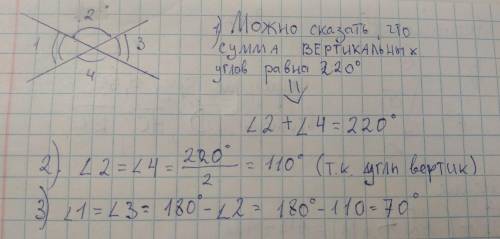 2
1
3
4
1) Можно сказать, что
сумма вертикальных
углов равна 220°
⇓
∠2 + ∠4 = 220°
2) ∠2 = ∠4 = 220°/2 = 110° (т.к. углы вертик)
3) ∠1 = ∠3 = 180° - ∠2 = 180° - 110 = 70°